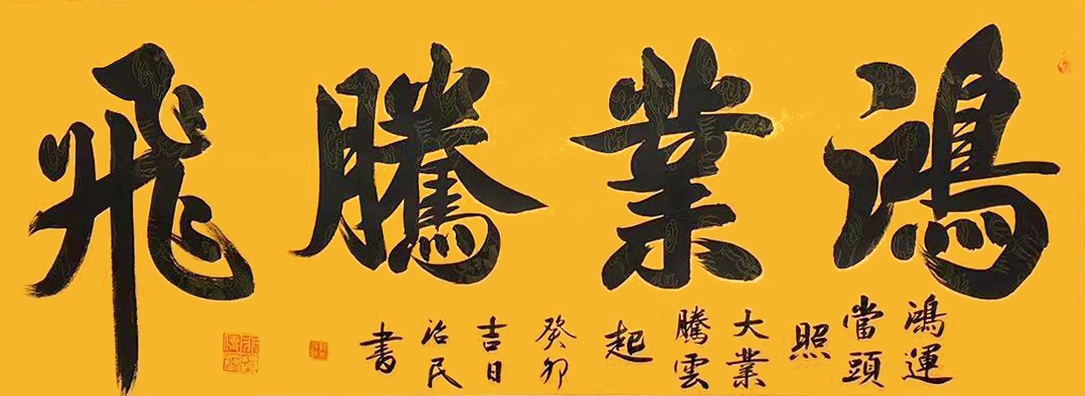 鴻業騰飛
鴻運
當頭
照
大業
騰雲
起
癸卯
吉日
治民
書